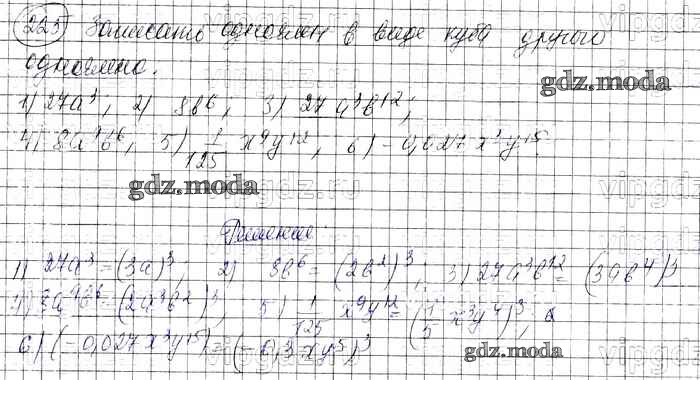 225 Записать одночлен в виде куба другого
одночлена.
gdz.moda
1) 27a³; 2) 8b⁶, 3) 27a³b¹²;
4) 8a⁹b⁶, 5) 1/125 x⁹y¹², 6) -0,027x³y¹⁵.
gdz.moda
Решение.
1) 27a³=(3a)³; 2) 8b⁶=(2b²)³; 3) 27a³b¹²=(3ab⁴)³
4) 8a⁹b⁶=(2a³b²)³; 5) 1/125 x⁹y¹²=(1/5 x³y⁴)³;
6) (-0,027x³y¹⁵)=(-0,3xy⁵)³
gdz.moda